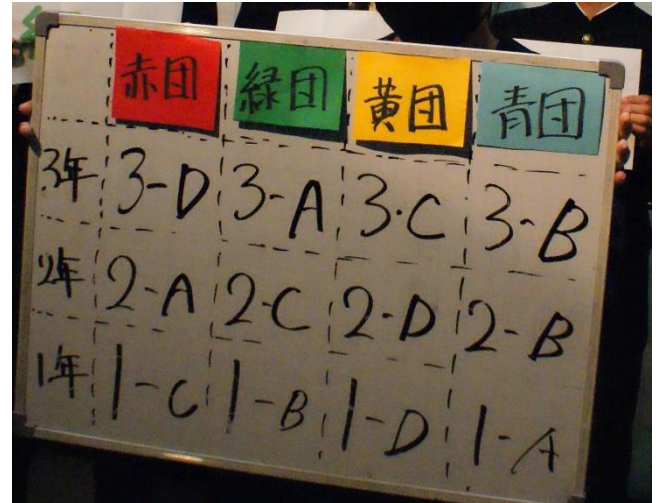 赤団 緑団 黄団 青団
3年 3-D 3-A 3・C 3-B
2年 2-A 2-C 2-D 2-B
1年 1-C 1-B 1-D 1-A